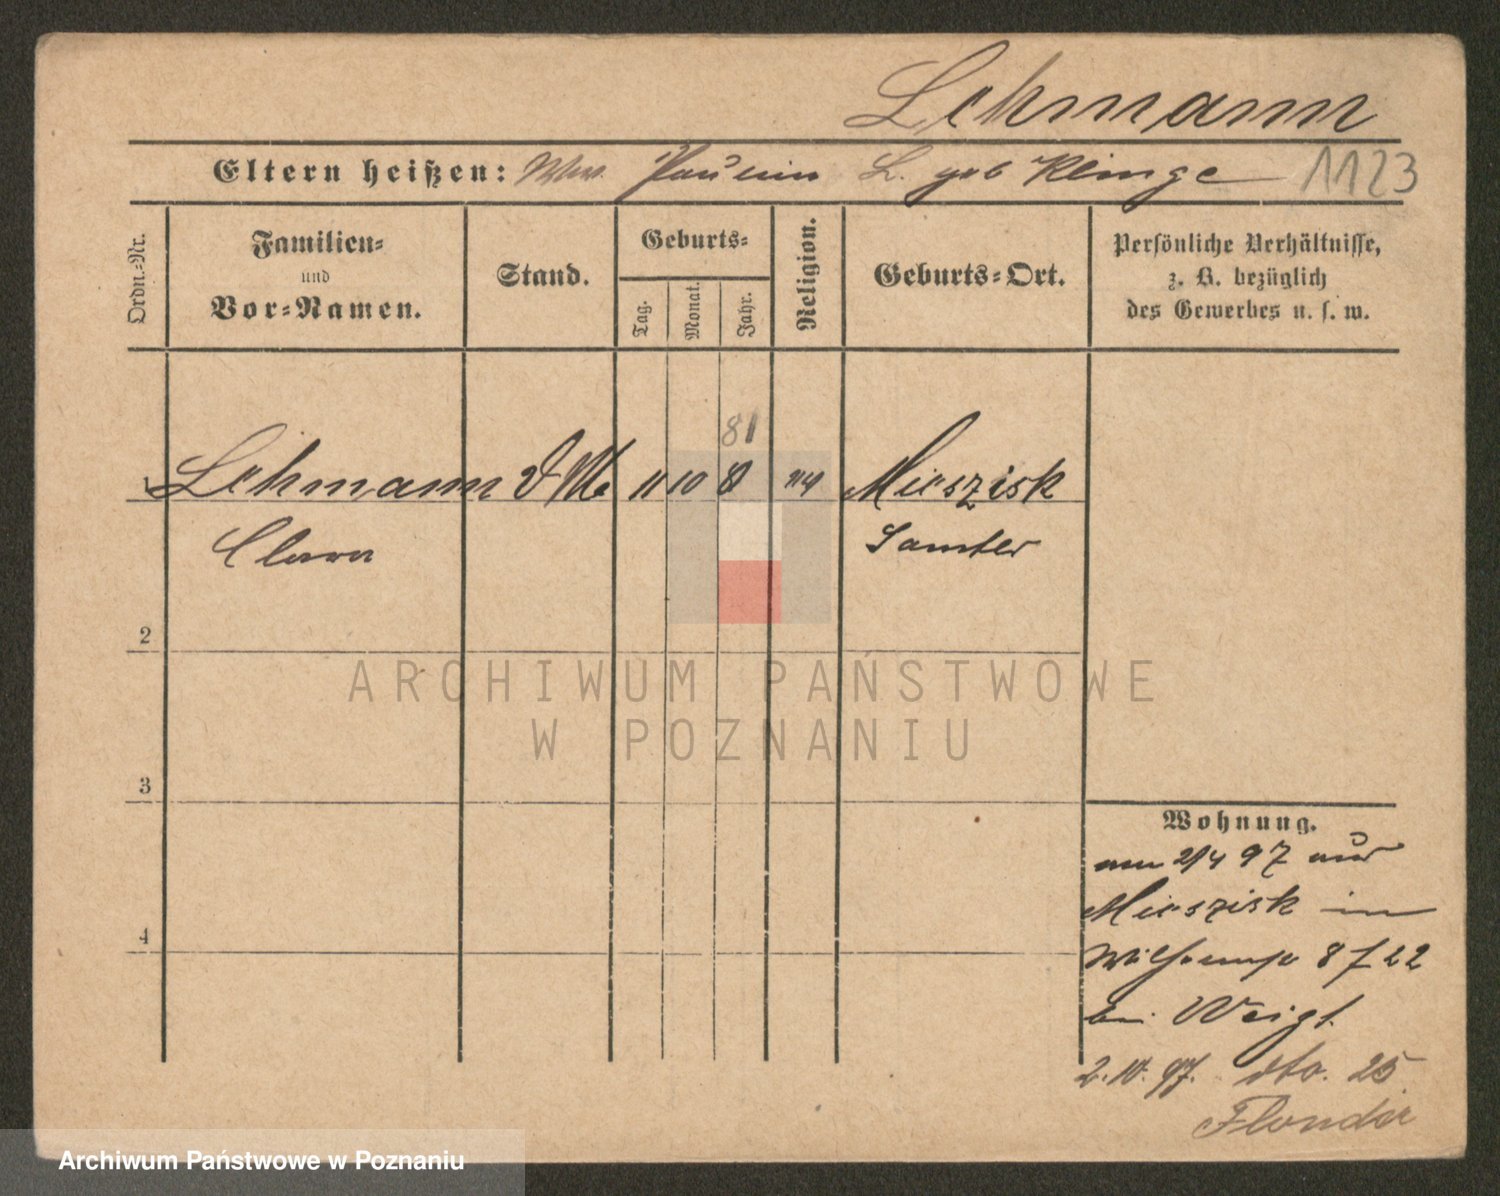 Lehmann
Eltern heißen: Ww. Paulin L. geb Klinge 1123
Ordn.-Nr.
Familien-
und
Vor-Namen.
Stand.
Geburts-
Tag.
Monat.
Jahr.
Religion.
Geburts-Ort.
Persönliche Verhältnisse,
z. B. bezüglich
des Gewerbes u. s. w.
81
1 Lehmann 11 10 Mieszisk
Clara Samter
2
3
4
Wohnung.
am 2/4 97 aus
Mieszisk in
8 f 22
bei Weigt
2.10.97. dto. 25
Flonder
ARCHIWUM PAŃSTWOWE
W POZNANIU
Archiwum Państwowe w Poznaniu